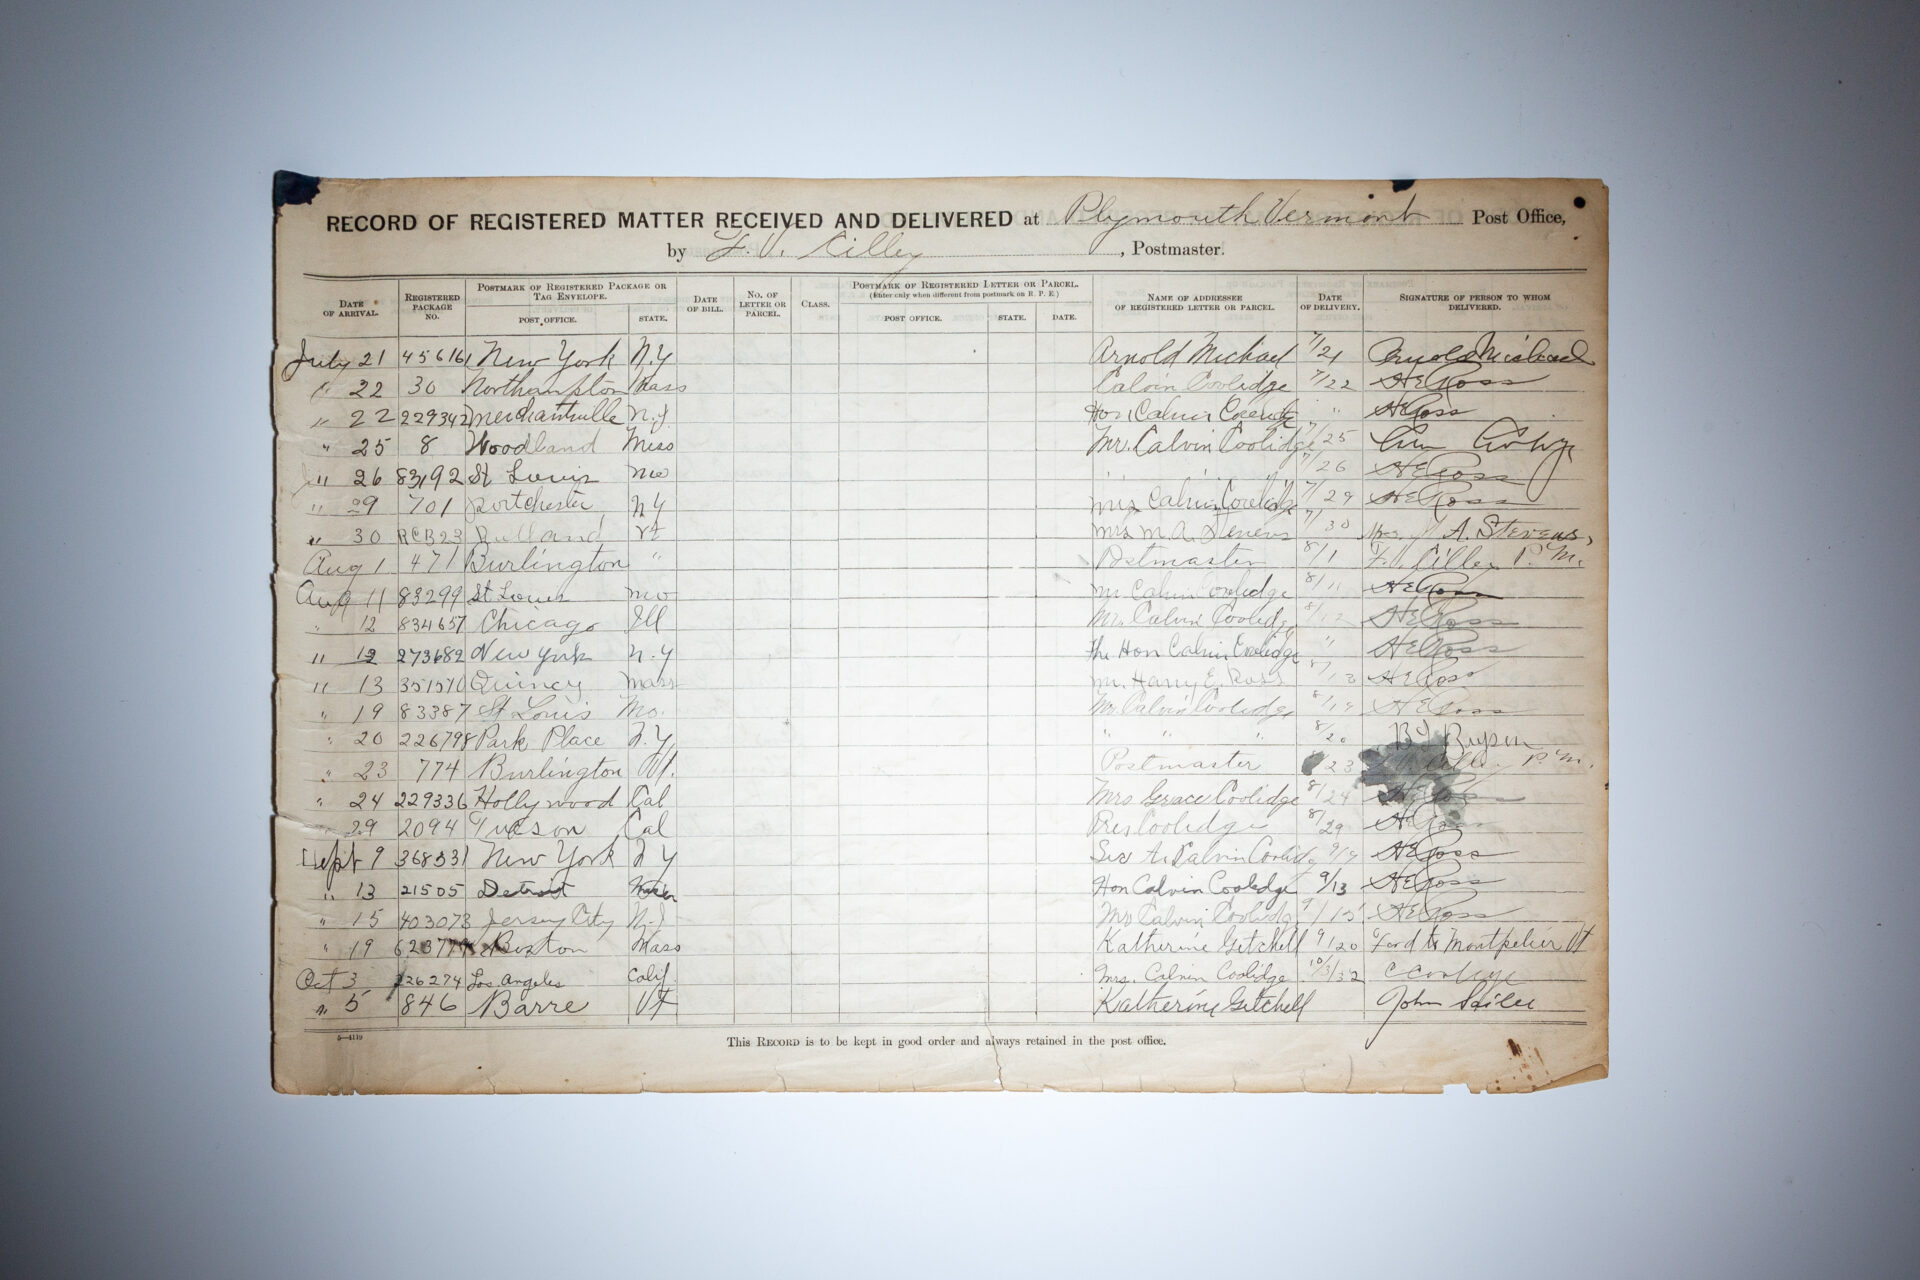 RECORD OF REGISTERED MATTER RECEIVED AND DELIVERED at Plymouth Vermont Post Office,
by F. V. Cilley, Postmaster.
DATE OF ARRIVAL. REGISTERED PACKAGE NO. POSTMARK OF REGISTERED PACKAGE OR TAG ENVELOPE. POST OFFICE. STATE. DATE OF BILL. NO. OF LETTER OR PARCEL. CLASS. POSTMARK OF REGISTERED LETTER OR PARCEL. (Enter only when different from postmark on R. P. E.) POST OFFICE. STATE. DATE. NAME OF ADDRESSEE OF REGISTERED LETTER OR PARCEL. DATE OF DELIVERY. SIGNATURE OF PERSON TO WHOM DELIVERED.
July 21 456161 New York N.Y Arnold Michael 7/21 Arnold Michael
" 22 30 Northampton Mass Calvin Coolidge 7/22 HERoss
" 22 229342 Merchantville N.J. Hon. Calvin Coolidge " HERoss
" 25 8 Woodland Miss Mr. Calvin Coolidge 7/25
" 26 83192 St Louis Mo 7/26 HERoss
" 29 701 Portchester N.Y Calvin Coolidge 7/29 HERoss
" 30 RCB23 Rutland Vt Mrs M. A. Stevens 7/30 Mrs. A. Stevens,
Aug 1 471 Burlington " Postmaster 8/1 F. V. Cilley P.M.
Aug 11 83299 St Louis Mo Mr Calvin Coolidge 8/11 HERoss
" 12 834657 Chicago Ill Mr. Calvin Coolidge 8/12 HERoss
" 12 273682 New York N.Y The Hon Calvin Coolidge " HERoss
" 13 351570 Quincy Mass Mr. Harry E. Ross 8/13 HERoss
" 19 83387 St Louis Mo. Mr. Calvin Coolidge 8/19 HERoss
" 20 226798 Park Place N.Y " " " 8/20
" 23 774 Burlington Vt. Postmaster 8/23 Cilley P.M.
" 24 229336 Hollywood Cal Mrs Grace Coolidge 8/24 HERoss
" 29 2094 Tucson Cal Pres Coolidge 8/29 HERoss
Sept 9 368531 New York N Y Calvin Coolidge 9/9 HERoss
" 13 21505 Detroit Hon Calvin Coolidge 9/13 HERoss
" 15 403073 Jersey City N.J Mr Calvin Coolidge 9/15 HERoss
" 19 Boston Mass Katherine Getchell 9/20 Ford to Montpelier Vt
Oct 3 226274 Los Angeles Calif. Mrs. Calvin Coolidge 10/3/32 C Coolidge
" 5 846 Barre Vt Katherine Getchell John
5—4119
This RECORD is to be kept in good order and always retained in the post office.